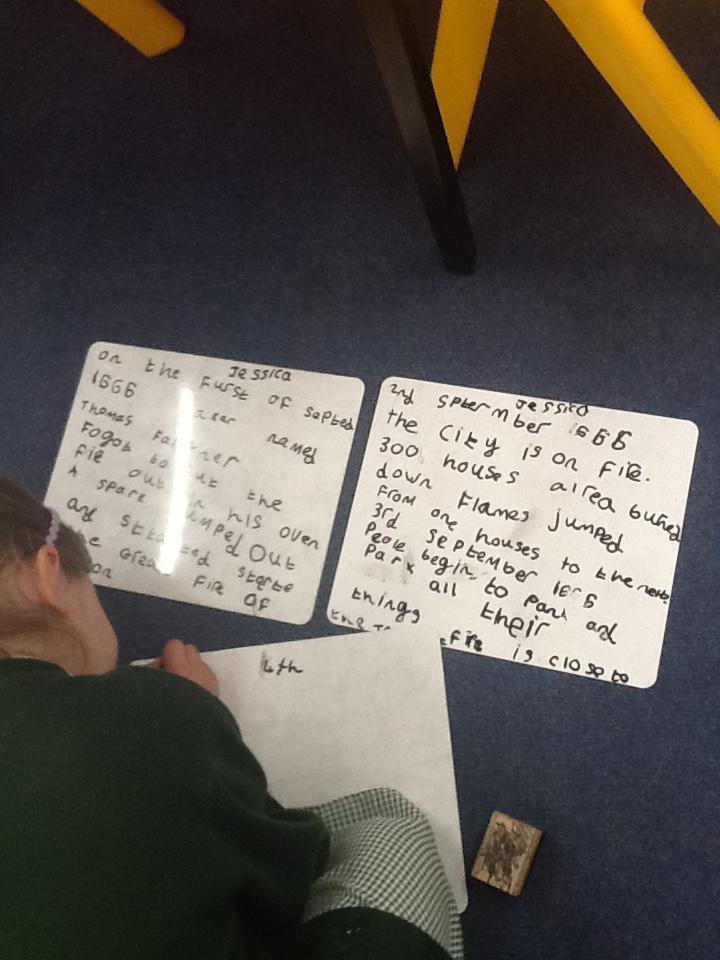 Jessica
on the furst of septed
1666 named
Thomas Farner
Fogot to ut the
fie out in his oven
A spark umped out
and started starte
the Great Fire of
on
Jessica
2nd september 1666
the city is on fire.
300 houses alrea buned
down flames jumped
from one houses to the next.
3rd september 1666
peole begin to panik and
Park all their
things
the fire is close to
4th